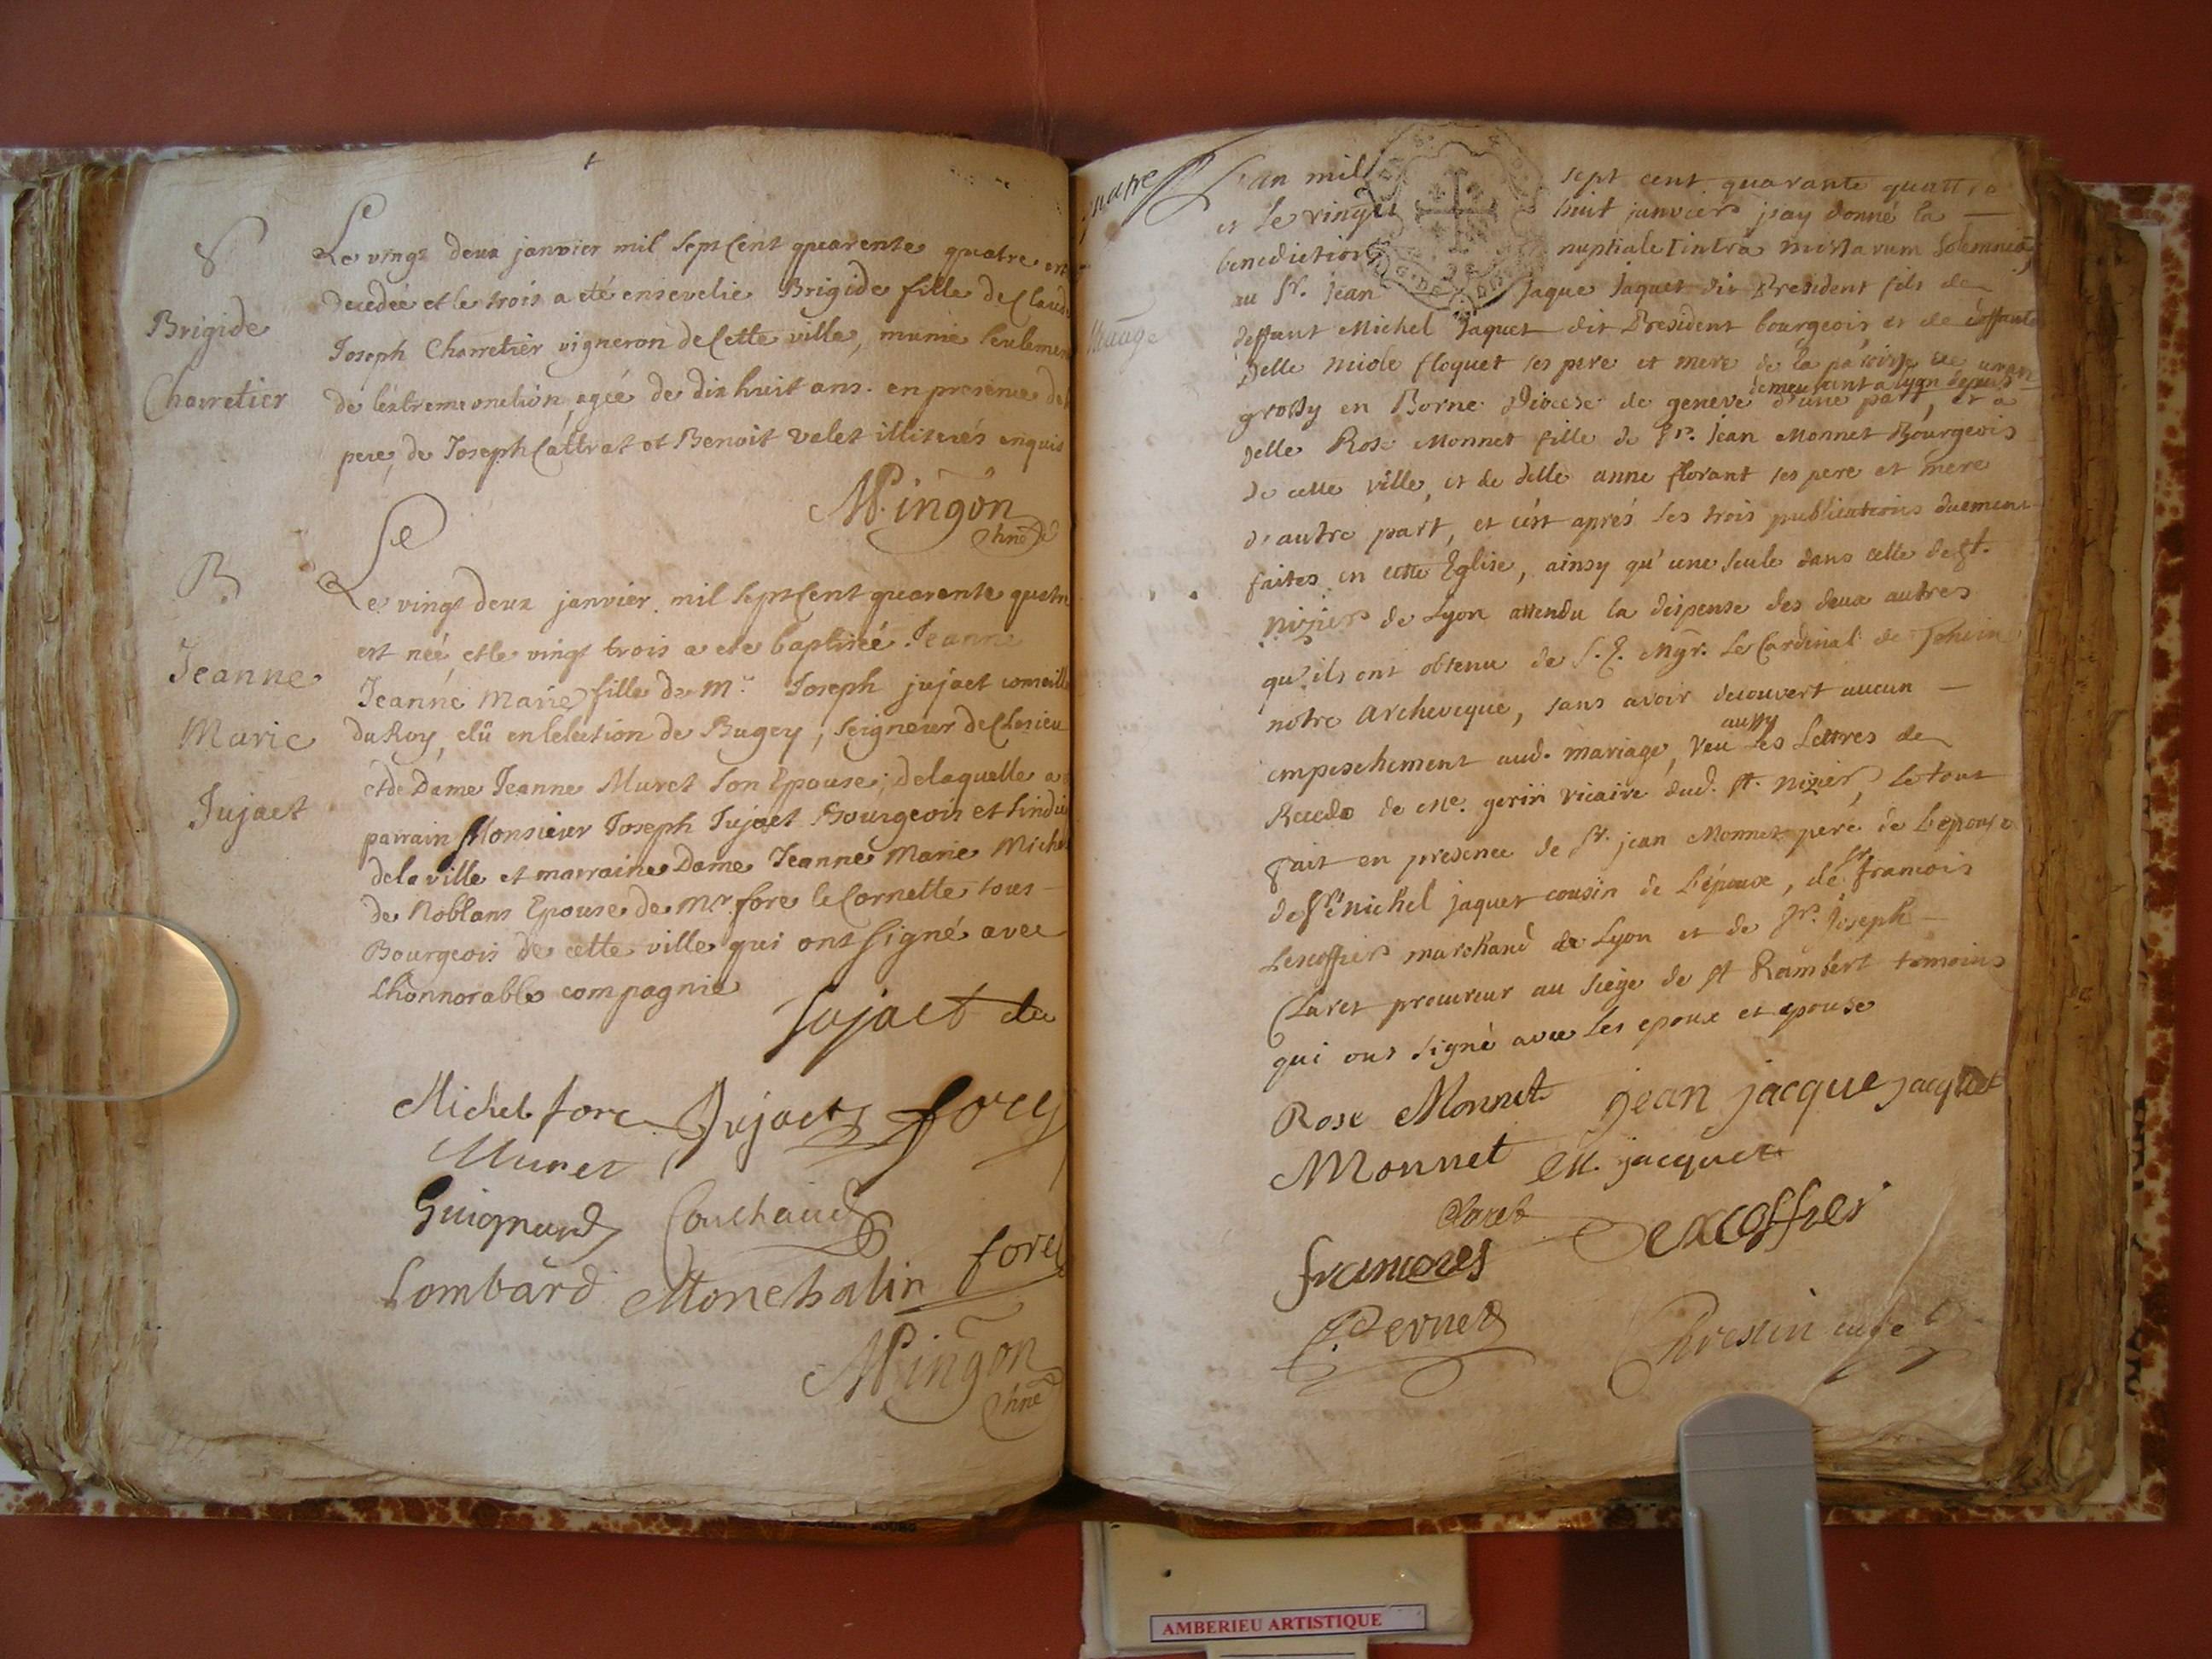 S
Brigide
Charretier
Le vingt deux janvier mil sept Cent quarente quatre est
decedée et le trois a eté ensevelie Brigide fille de Claude
Joseph Charretier vigneron de Cette ville, munie seulement
de l'extreme onction, agée de dix huit ans. en presence de
pere, de Joseph Cattrat et Benoit Velet illiterés enquis
Mingon
B
Jeanne
Marie
Jujaet
Le vingt deux janvier mil sept Cent quarente quatre
est née, et le vingt trois a eté baptisée Jeanne
Jeanne Marie fille de Mr. Joseph jujaet conseille
du Roy, elû en lelection de Bugey, seigneur de Chesieu
et de Dame Jeanne Muret son Epouse; de laquelle a
parrain Monsieur Joseph Jujaet Bourgeois et sindic
de la ville et marraine Dame Jeanne Marie Michel
de Noblans Epouse de Mr. fore le Cornette tous
Bourgeois de cette ville qui ont signé avec
L'honnorable compagnie
Jujaet
Michel fore Jujaet forey
Muret
Guignard Couchaud
Lombard Monchalin forey
Mingon
L'an mil sept cent quarante quattre
et le vingt huit janvier j'ay donné la
benediction nuptiale intrà missarum solemnia
au Sr. Jean Jaque Jaquet dit President fils de
deffunt Michel Jaquet dit President bourgeois et de deffunte
Delle Micole floquet ses pere et mere de la paroisse de
demeurant a Lyon depuis un an
grossy en Borne Diocese de geneve d'une part, et a
Delle Rose Monnet fille de Sr. Jean Monnet Bourgeois
de cette ville, et de delle anne florant ses pere et mere
d'autre part, et c'est aprés les trois publications duement
faites en cette Eglise, ainsy qu'une seule dans celle de St.
nizier de Lyon attendu la dispense des deux autres
qu'ils ont obtenu de S. E. Mgr. Le Cardinal de
notre Archeveque, sans avoir decouvert aucun
empeschement aud. mariage, veu aussy les Lettres de
Recedo de Me. gerin vicaire dud. St. nizier, le tout
fait en presence de Sr. jean Monnet pere de L'epouse
de Sr. michel jaquet cousin de L'epoux, de Sr. francois
Lescoffier marchand de Lyon et de Sr. Joseph
Claret procureur au siege de St Rambert temoins
qui ont signé avec les epoux et epouse
Rose Monnet jean jacque jacquet
Monnet M. jacquet
Claret
francoies Dexcoffier
Pernet
Chrestin curé
AMBERIEU ARTISTIQUE